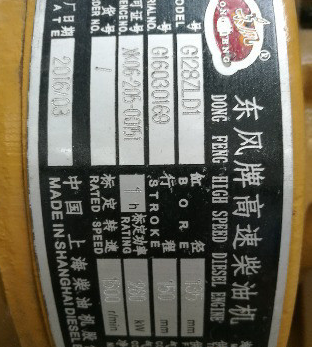 东风
DONG FENG
®
东风牌高速柴油机
DONG FENG HIGH SPEED DIESEL ENGINE
号
MODEL
G128ZLD1
缸径
BORE
135 mm
号
SERIAL NO.
G16030169
行程
STROKE
150 mm
可证号
LICENCE NO.
1 h 标定功率
RATING
kW
货号
ORDER NO.
/
标定转速
RATED SPEED
1500 r/min
厂日期
DATE
2016/03
中国上海柴油机股
MADE IN SHANGHAI DIESEL